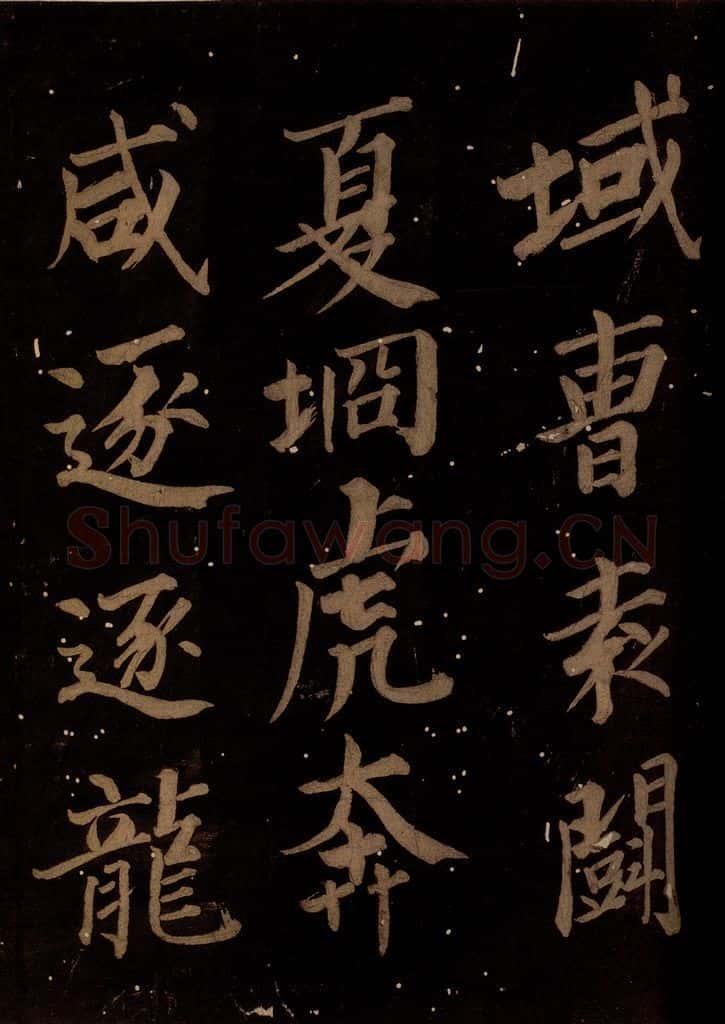 域曹袁闘
夏堈虎奔
咸逐逐龍
Shufawang.CN